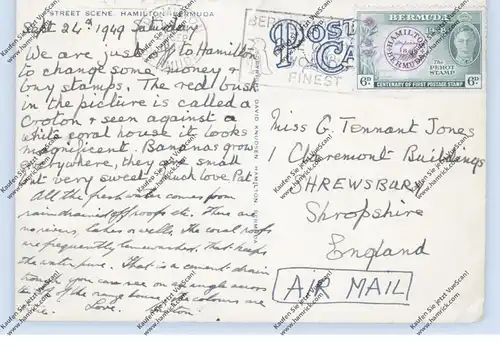 STREET SCENE, HAMILTON, BERMUDA
Sept 24th 1949 Saturday
We are just off to Hamilton
to change some money &
buy stamps. The red bush
in the picture is called a
Croton & seen against a
white coral house it looks
magnificent. Bananas grow
everywhere, they are small
but very sweet. Much love Pat
All the fresh water comes from
rain drained off roofs etc. There are
no rivers, lakes or wells. The coral roofs
are frequently limewashed. That keeps
the water pure. That is a cement drain
you can see on angle across
the of the house the colours are
Love.
DAVID KNUDSEN HAMILTON, BERMUDA
POST CARD
FINEST
BERMUDA
HAMILTON
BERMUDA
THE PEROT STAMP
6D
6D
CENTENARY OF FIRST POSTAGE STAMP
Miss G Tennant Jones
1 Claremont Buildings
SHREWSBURY
Shropshire
England
AIR MAIL
Kaufen Sie jetzt VueScan!
www.hamrick.com